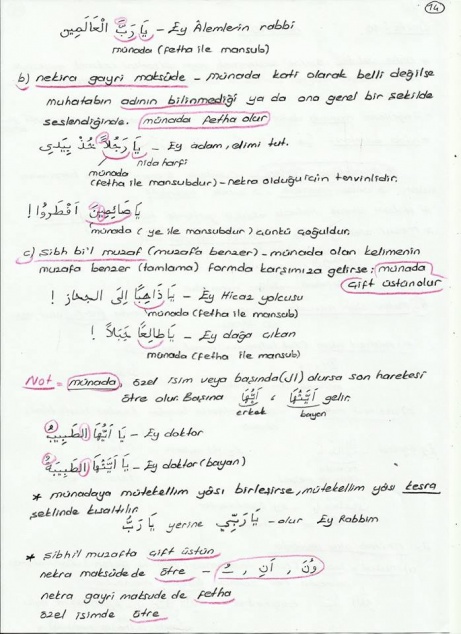 14
يَا رَبَّ الْعَالَمِينَ – Ey Âlemlerin rabbi
münada (fetha ile mansub)
b) nekira gayri maksûde – münada kati olarak belli değilse
muhatabın adının bilinmediği ya da ona genel bir şekilde
seslendiğinde. münada fetha olur
يَا رَجُلاً خُذْ بِيَدِي – Ey adam, elimi tut.
nida harfi
münada
(fetha ile mansubdur) – nekra olduğu için tenvinlidir.
يَا صَائِمِينَ أَفْطَرُوا !
münada (ye ile mansubdur) çünkü çoğuldur.
c) Şibh bi'l muzaf (muzafa benzer) – münada olan kelimenin
muzafa benzer (tamlama) formda karşımıza gelirse; münada
çift üstün olur
يَا ذَاهِبًا إِلَى الحجاز ! – Ey Hicaz yolcusu
münada (fetha ile mansub)
يَا طَالِعًا جَبَلاً ! – Ey dağa çıkan
münada (fetha ile mansub)
Not = münada, özel isim veya başında (ال) olursa son harekesi
ötre olur. Başına أَيُّهَا ، أَيَّتُهَا gelir.
erkek bayan
يَا أَيُّهَا الطَّبِيبُ – Ey doktor
يَا أَيَّتُهَا الطَّبِيبَةُ – Ey doktor (bayan)
* münadaya mütekellim yâsı birleşirse, mütekellim yâsı kesra
şeklinde kısaltılır.
يَا رَبِّ yerine يَا رَبِّي – olur Ey Rabbim
* Şibhi'l muzafta çift üstün
nekra maksûde de ötre – ـُ , اَنِ , وُنَ
nekra gayri maksude de fetha
özel isimde ötre